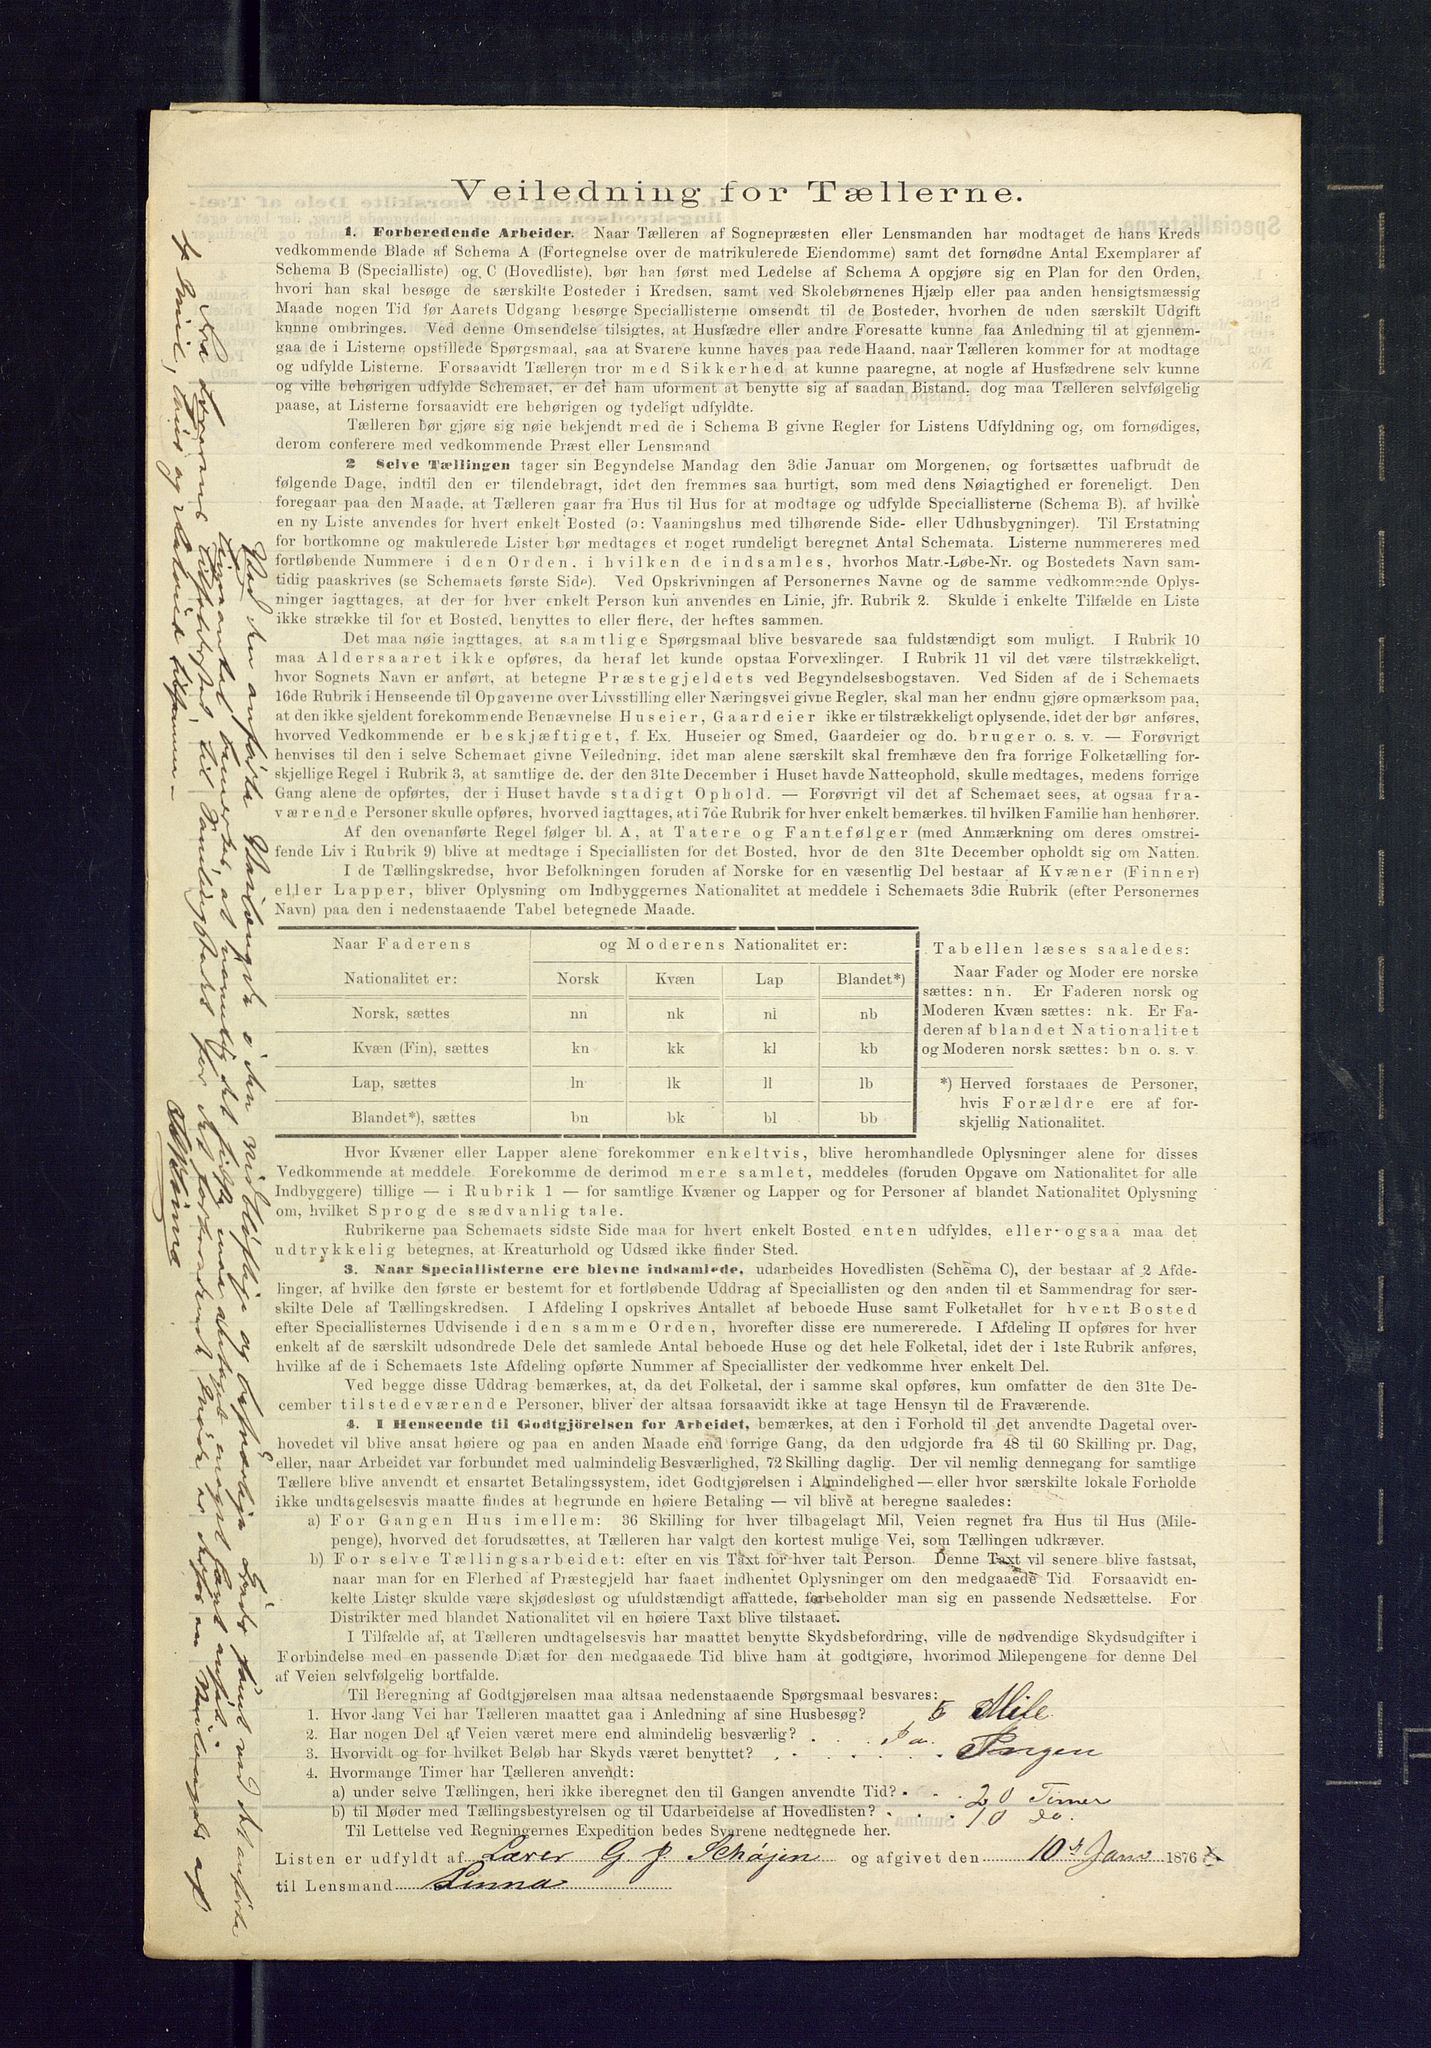 Veiledning for Tællerne.
1. Forberedende Arbeider. Naar Tælleren af Sognepræsten eller Lensmanden har modtaget de hans Kreds
vedkommende Blade af Schema A (Fortegnelse over de matrikulerede Eiendomme) samt det fornødne Antal Exemplarer af
Schema B (Specialliste) og C (Hovedliste), bør han først med Ledelse af Schema A opgjøre sig en Plan for den Orden,
hvori han skal besøge de særskilte Bosteder i Kredsen, samt ved Skolebørnenes Hjælp eller paa anden hensigtsmæssig
Maade nogen Tid før Aarets Udgang besørge Speciallisterne omsendt til de Bosteder, hvorhen de uden særskilt Udgift
kunne ombringes. Ved denne Omsendelse tilsigtes, at Husfædre eller andre Foresatte kunne faa Anledning til at gjennem-
gaa de i Listerne opstillede Spørgsmaal, saa at Svarene kunne haves paa rede Haand, naar Tælleren kommer for at modtage
og udfylde Listerne. Forsaavidt Tælleren tror med Sikkerhed at kunne paaregne, at nogle af Husfædrene selv kunne
og ville behørigen udfylde Schemaet, er det ham uforment at benytte sig af saadan Bistand, dog maa Tælleren selvfølgelig
paase, at Listerne forsaavidt ere behørigen og tydeligt udfyldte.
Tælleren bør gjøre sig nøie bekjendt med de i Schema B givne Regler for Listens Udfyldning og, om fornødiges,
derom conferere med vedkommende Præst eller Lensmand
2 Selve Tællingen tager sin Begyndelse Mandag den 3die Januar om Morgenen, og fortsættes uafbrudt de
følgende Dage, indtil den er tilendebragt, idet den fremmes saa hurtigt, som med dens Nøiagtighed er foreneligt. Den
foregaar paa den Maade, at Tælleren gaar fra Hus til Hus for at modtage og udfylde Speciallisterne (Schema B). af hvilke
en ny Liste anvendes for hvert enkelt Bosted (ɔ: Vaaningshus med tilhørende Side- eller Udhusbygninger). Til Erstatning
for bortkomne og makulerede Lister bør medtages et noget rundeligt beregnet Antal Schemata. Listerne nummereres med
fortløbende Nummere i den Orden, i hvilken de indsamles, hvorhos Matr.-Løbe-Nr. og Bostedets Navn sam-
tidig paaskrives (se Schemaets første Side). Ved Opskrivningen af Personernes Navne og de samme vedkommende Oplys-
ninger iagttages, at der for hver enkelt Person kun anvendes en Linie, jfr. Rubrik 2. Skulde i enkelte Tilfælde en Liste
ikke strække til for et Bosted, benyttes to eller flere, der heftes sammen.
Det maa nøie iagttages, at samtlige Spørgsmaal blive besvarede saa fuldstændigt som muligt. I Rubrik 10
maa Aldersaaret ikke opføres, da heraf let kunde opstaa Forvexlinger. I Rubrik 11 vil det være tilstrækkeligt,
hvor Sognets Navn er anført, at betegne Præstegjeldets ved Begyndelsesbogstaven. Ved Siden af de i Schemaets
16de Rubrik i Henseende til Opgaverne over Livsstilling eller Næringsvei givne Regler, skal man her endnu gjøre opmærksom paa,
at den ikke sjeldent forekommende Benævnelse Huseier, Gaardeier ikke er tilstrækkeligt oplysende, idet der bør anføres,
hvorved Vedkommende er beskjæftiget, f. Ex. Huseier og Smed, Gaardeier og do. bruger o. s. v. — Forøvrigt
henvises til den i selve Schemaet givne Veiledning, idet man alene særskilt skal fremhæve den fra forrige Folketælling for-
skjellige Regel i Rubrik 3, at samtlige de, der den 31te December i Huset havde Natteophold, skulle medtages, medens forrige
Gang alene de opførtes, der i Huset havde stadigt Ophold. — Forøvrigt vil det af Schemaet sees, at ogsaa fra-
værende Personer skulle opføres, hvorved iagttages, at i 7de Rubrik for hver enkelt bemærkes. til hvilken Familie han henhører.
Af den ovenanførte Regel følger bl. A, at Tatere og Fantefølger (med Anmærkning om deres omstrei-
fende Liv i Rubrik 9) blive at medtage i Speciallisten for det Bosted, hvor de den 31te December opholdt sig om Natten.
I de Tællingskredse, hvor Befolkningen foruden af Norske for en væsentlig Del bestaar af Kvæner (Finner)
eller Lapper, bliver Oplysning om Indbyggernes Nationalitet at meddele i Schemaets 3die Rubrik (efter Personernes
Navn) paa den i nedenstaaende Tabel betegnede Maade.
Naar Faderens og Moderens Nationalitet er:
Nationalitet er: Norsk Kvæn Lap Blandet*)
Norsk, sættes nn nk nl nb
Kvæn (Fin), sættes kn kk kl kb
Lap, sættes ln lk ll lb
Blandet*), sættes bn bk bl bb
Tabellen læses saaledes:
Naar Fader og Moder ere norske
sættes: nn. Er Faderen norsk og
Moderen Kvæn sættes: nk. Er Fa-
deren af blandet Nationalitet
og Moderen norsk sættes: bn o. s. v
*) Herved forstaaes de Personer,
hvis Forældre ere af for-
skjellig Nationalitet.
Hvor Kvæner eller Lapper alene forekommer enkeltvis, blive heromhandlede Oplysninger alene for disses
Vedkommende at meddele. Forekomme de derimod mere samlet, meddeles (foruden Opgave om Nationalitet for alle
Indbyggere) tillige — i Rubrik 1 — for samtlige Kvæner og Lapper og for Personer af blandet Nationalitet Oplysning
om, hvilket Sprog de sædvanlig tale.
Rubrikerne paa Schemaets sidste Side maa for hvert enkelt Bosted enten udfyldes, eller ogsaa maa det
udtrykkelig betegnes, at Kreaturhold og Udsæd ikke finder Sted.
3. Naar Speciallisterne ere blevne indsamlede, udarbeides Hovedlisten (Schema C), der bestaar af 2 Afde-
linger, af hvilke den første er bestemt for et fortløbende Uddrag af Speciallisten og den anden til et Sammendrag for sær-
skilte Dele af Tællingskredsen. I Afdeling I opskrives Antallet af beboede Huse samt Folketallet for hvert Bosted
efter Speciallisternes Udvisende i den samme Orden, hvorefter disse ere numererede. I Afdeling II opføres for hver
enkelt af de særskilt udsondrede Dele det samlede Antal beboede Huse og det hele Folketal, idet der i 1ste Rubrik anføres,
hvilke af de i Schemaets 1ste Afdeling opførte Nummer af Speciallister der vedkomme hver enkelt Del.
Ved begge disse Uddrag bemærkes, at, da det Folketal, der i samme skal opføres, kun omfatter de den 31te De-
cember tilstedeværende Personer, bliver der altsaa forsaavidt ikke at tage Hensyn til de Fraværende.
4. I Henseende til Godtgjörelsen for Arbeidet, bemærkes, at den i Forhold til det anvendte Dagetal over-
hovedet vil blive ansat høiere og paa en anden Maade end forrige Gang, da den udgjorde fra 48 til 60 Skilling pr. Dag,
eller, naar Arbeidet var forbundet med ualmindelig Besværlighed, 72 Skilling daglig. Der vil nemlig dennegang for samtlige
Tællere blive anvendt et ensartet Betalingssystem, idet Godtgjørelsen i Almindelighed — eller hvor særskilte lokale Forholde
ikke undtagelsesvis maatte findes at begrunde en høiere Betaling — vil blive at beregne saaledes:
a) For Gangen Hus imellem: 36 Skilling for hver tilbagelagt Mil, Veien regnet fra Hus til Hus (Mile-
penge), hvorved det forudsættes, at Tælleren har valgt den kortest mulige Vei, som Tællingen udkræver.
b) For selve Tællingsarbeidet: efter en vis Taxt for hver talt Person. Denne Taxt vil senere blive fastsat,
naar man for en Flerhed af Præstegjeld har faaet indhentet Oplysninger om den medgaaede Tid. Forsaavidt en-
kelte Lister skulde være skjødesløst og ufuldstændigt affattede, forbeholder man sig en passende Nedsættelse. For
Distrikter med blandet Nationalitet vil en høiere Taxt blive tilstaaet.
I Tilfælde af, at Tælleren undtagelsesvis har maattet benytte Skydsbefordring, ville de nødvendige Skydsudgifter i
Forbindelse med en passende Diæt for den medgaaede Tid blive ham at godtgjøre, hvorimod Milepengene for denne Del
af Veien selvfølgelig bortfalde.
Til Beregning af Godtgjørelsen maa altsaa nedenstaaende Spørgsmaal besvares:
1. Hvor lang Vei har Tælleren maattet gaa i Anledning af sine Husbesøg? 5 Mile
2. Har nogen Del af Veien været mere end almindelig besværlig? Ja.
3. Hvorvidt og for hvilket Beløb har Skyds været benyttet? Ingen
4. Hvormange Timer har Tælleren anvendt:
a) under selve Tællingen, heri ikke iberegnet den til Gangen anvendte Tid? 20 Timer
b) til Møder med Tællingsbestyrelsen og til Udarbeidelse af Hovedlisten? 10 do.
Til Lettelse ved Regningernes Expedition bedes Svarene nedtegnede her.
Listen er udfyldt af Lærer G. J. Schøjen og afgivet den 10de Janr 1876
til Lensmand Linna